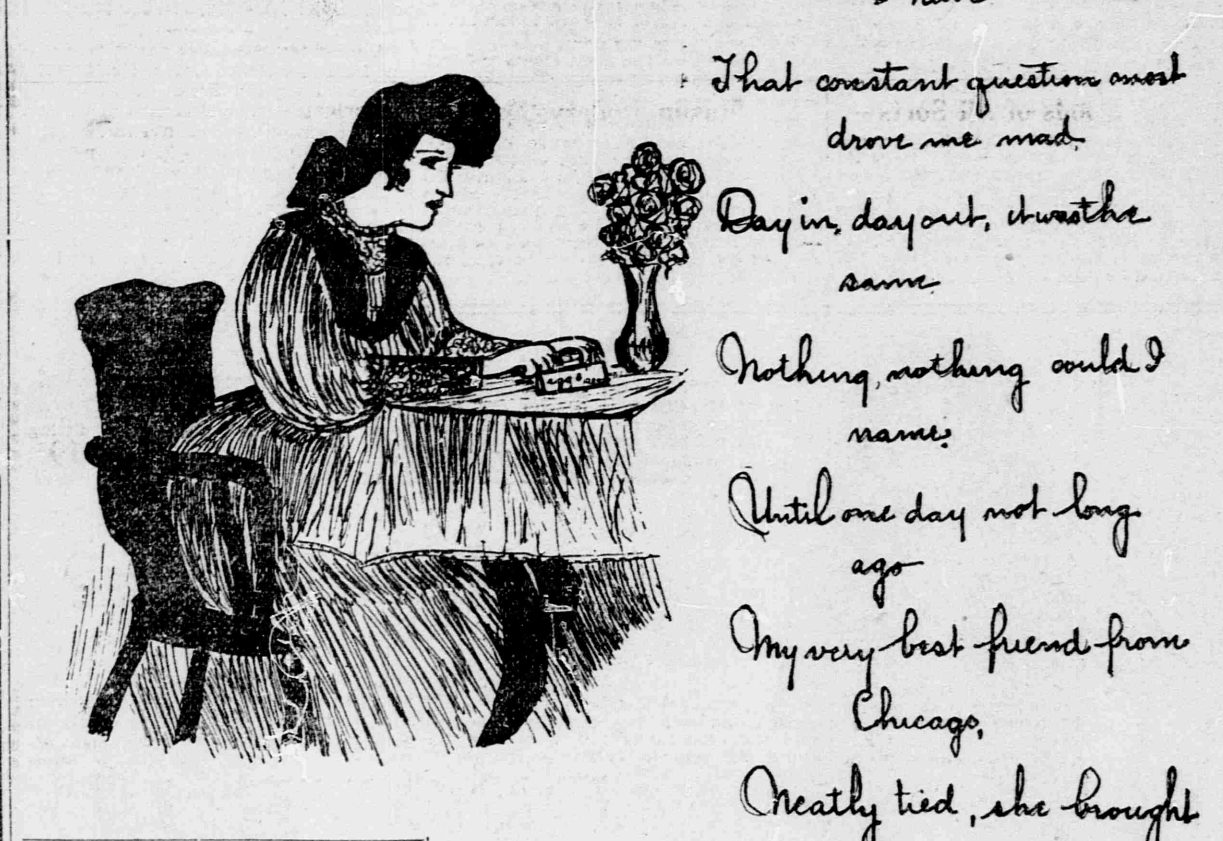 have
That constant question most
drove me mad.
Day in, day out, it was the
same.
Nothing, nothing could I
name.
Until one day not long
ago
My very best friend from
Chicago,
Neatly tied, she brought